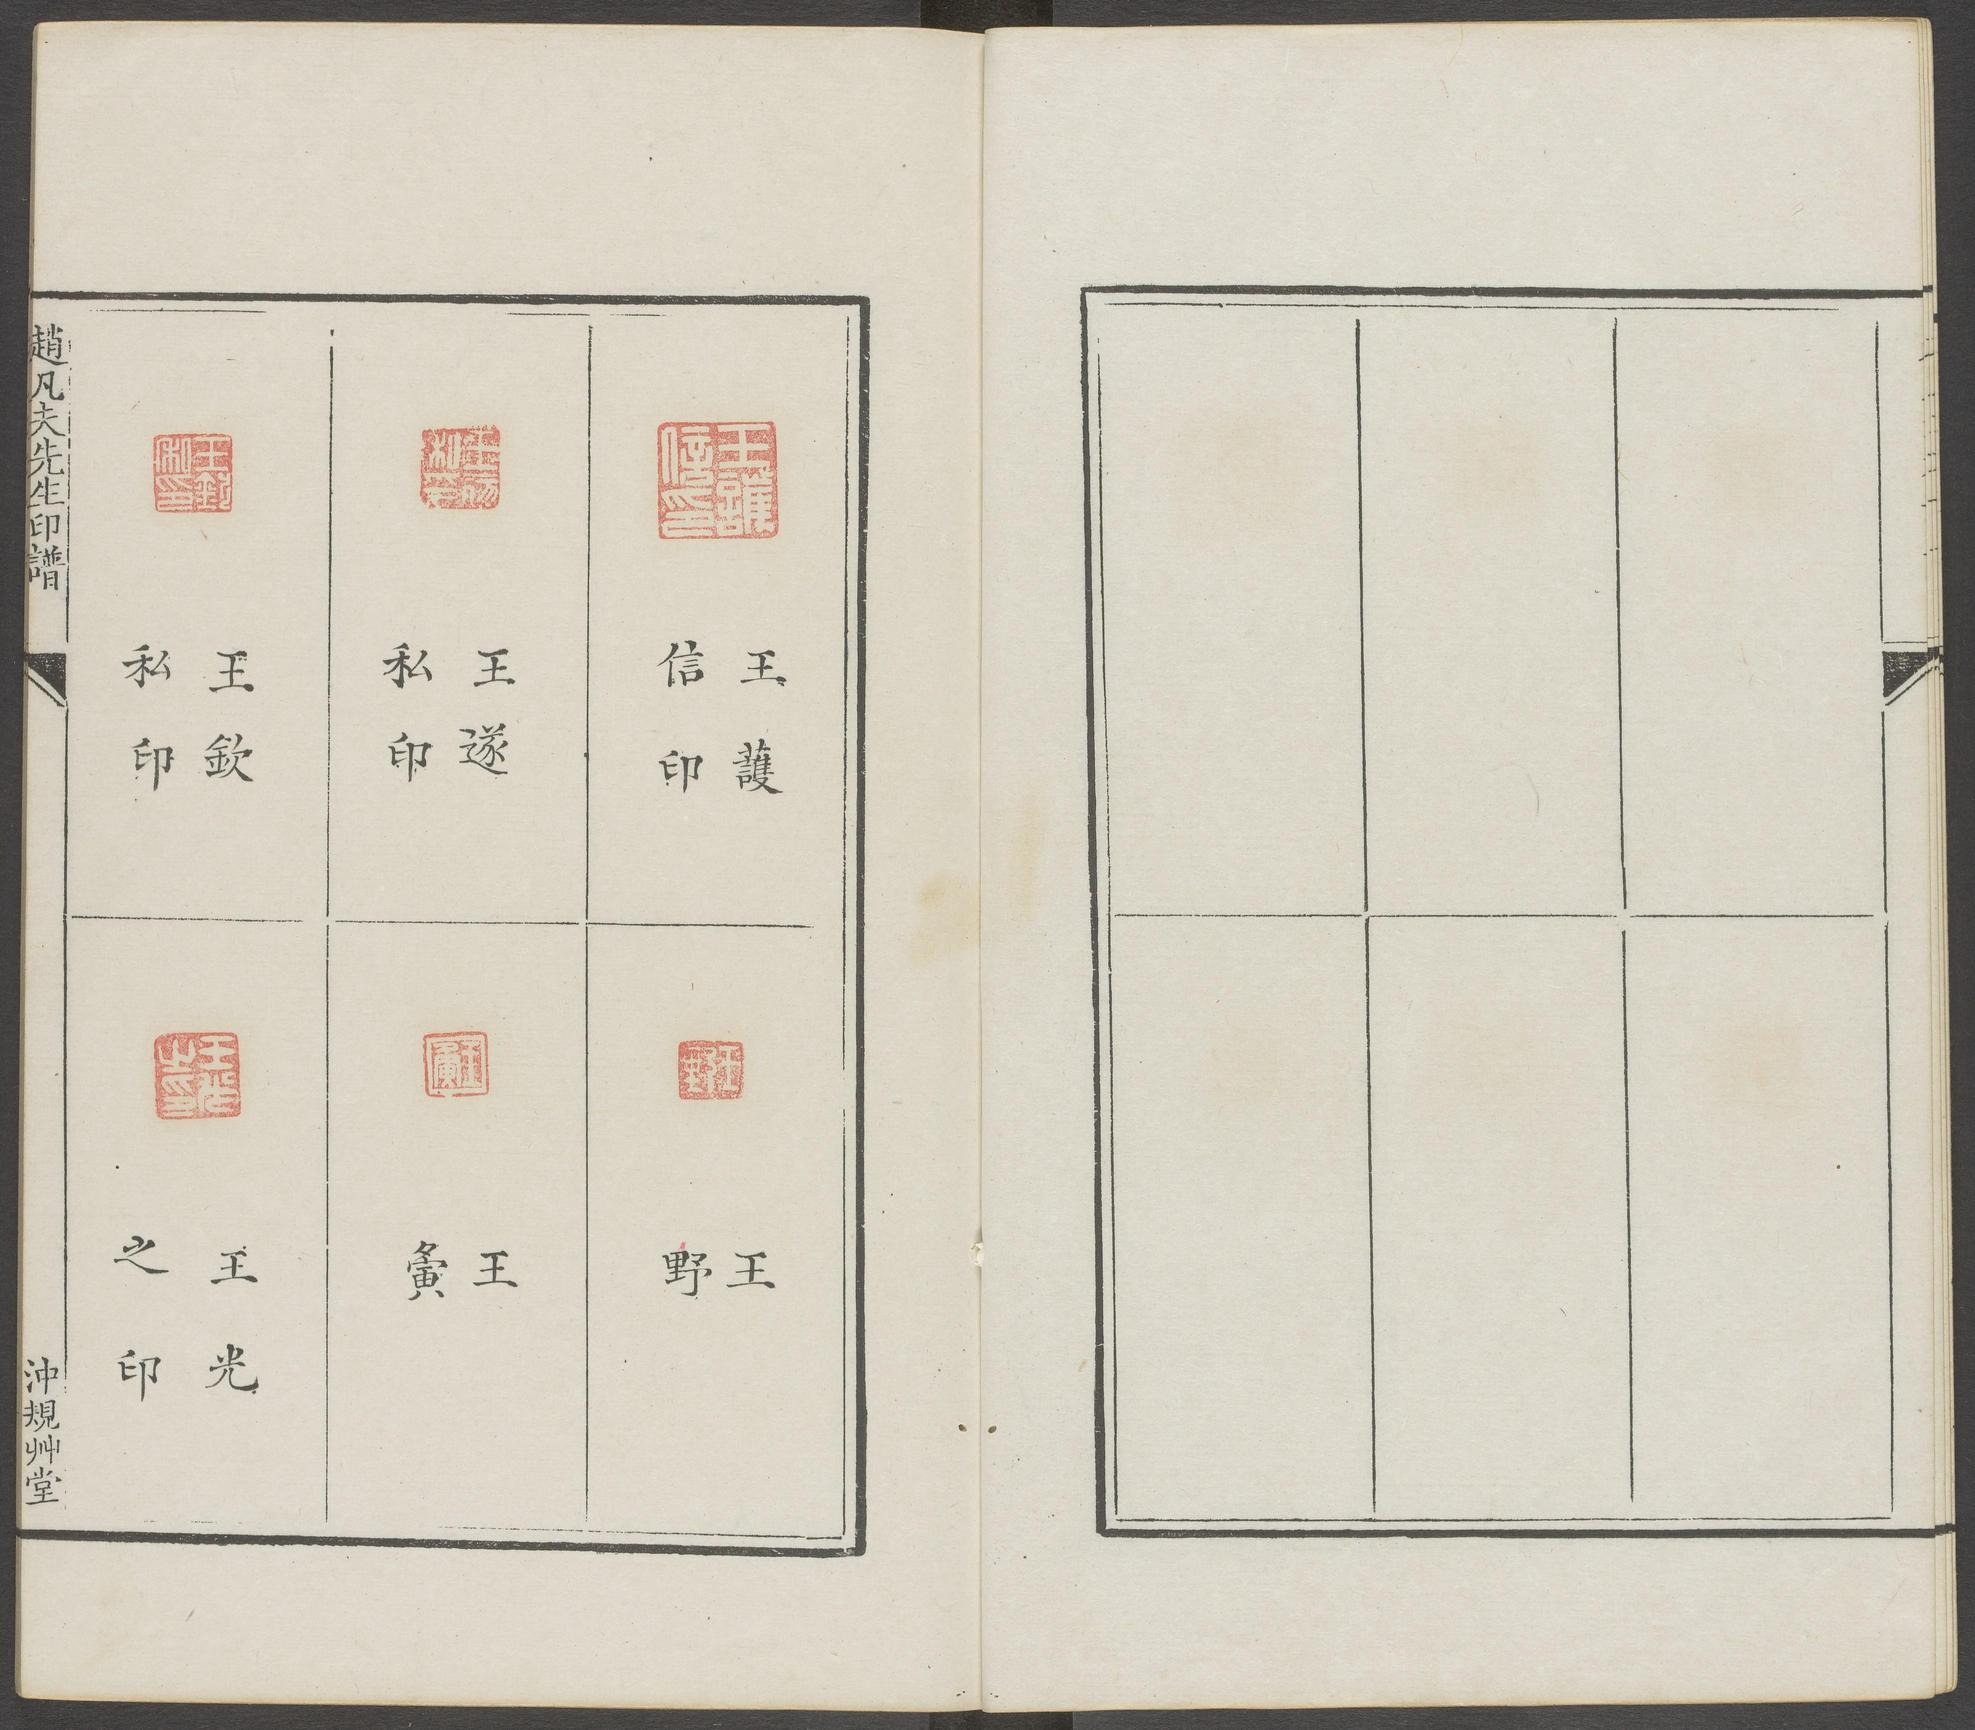 王護
信印
王遂
私印
王欽
私印
王野
王夤
王光
之印
趙凡夫先生印譜
沖規艸堂